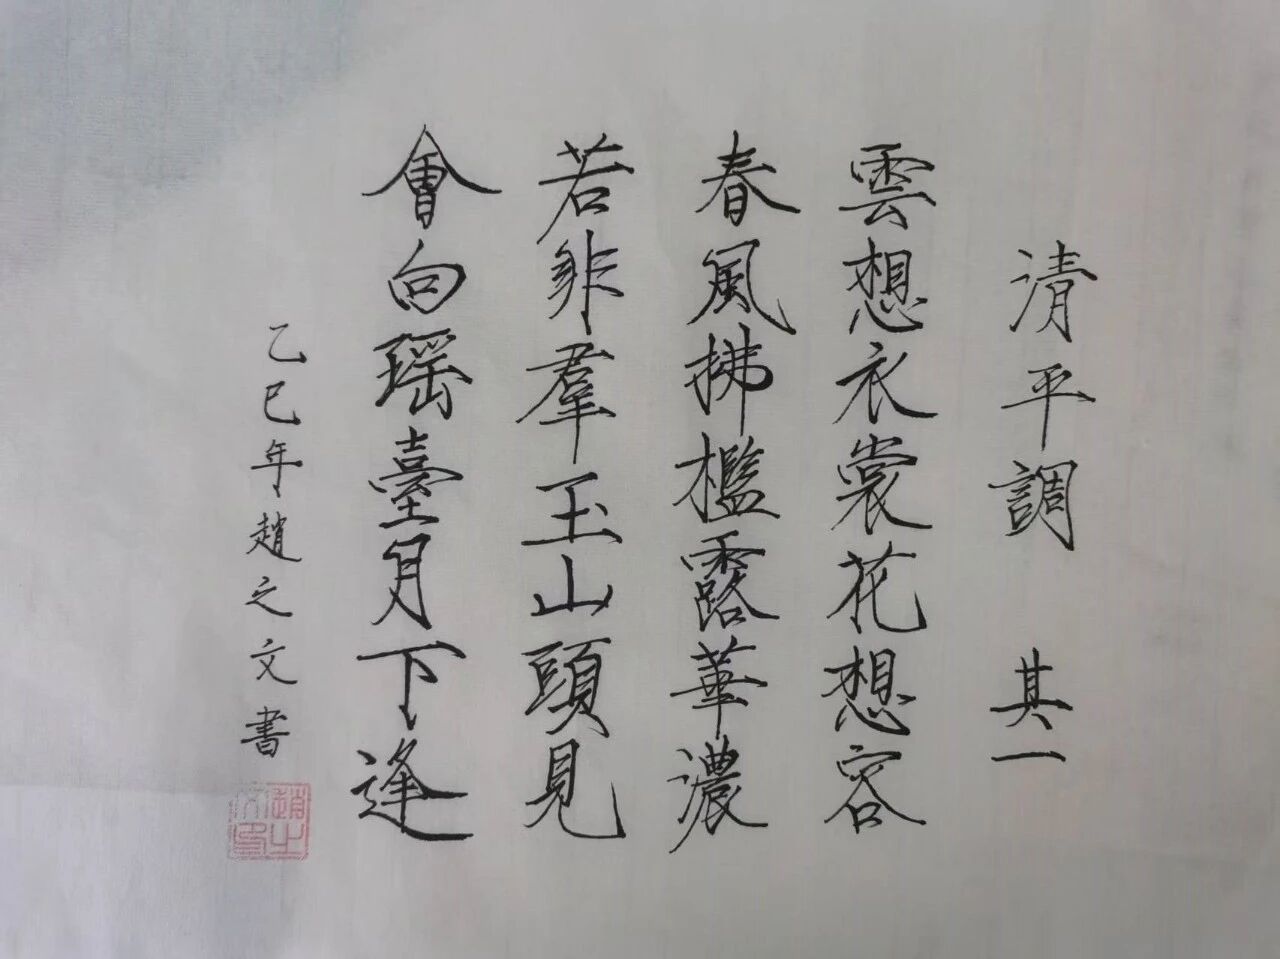 清平調 其一
雲想衣裳花想容
春風拂檻露華濃
若非羣玉山頭見
會向瑶臺月下逢
乙巳年趙之文書
趙之文印